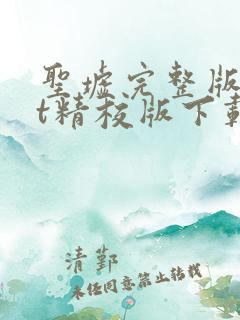 聖墟完整版
t精校版下載
清鄞
未任同意禁止转载